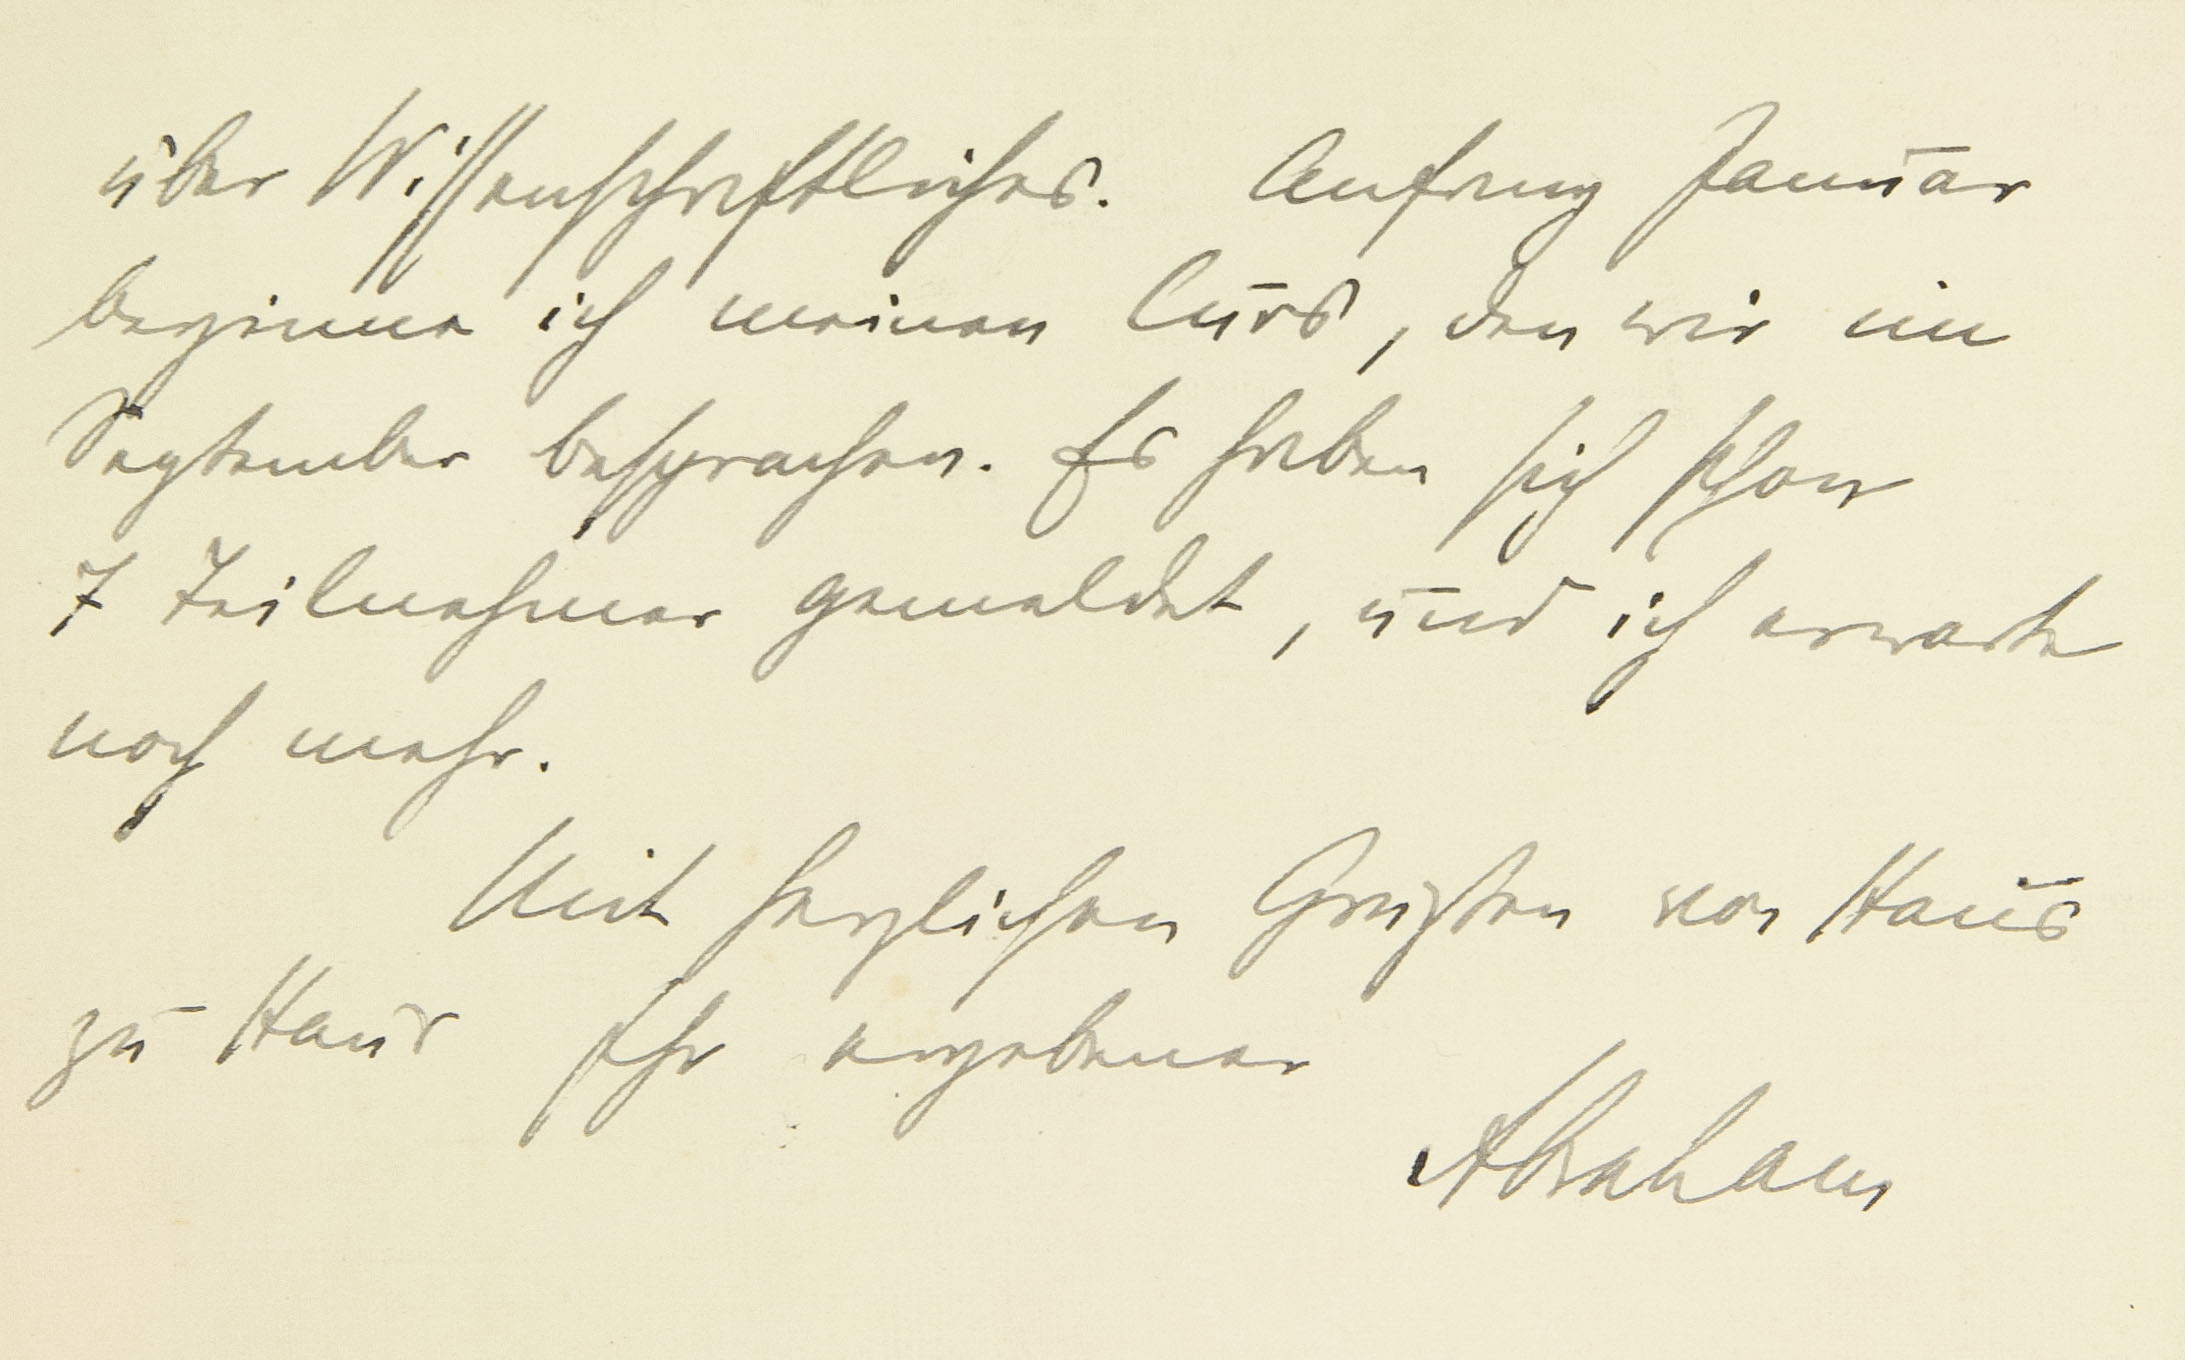 über Wissenschaftliches. Anfang Januar
beginne ich meinen Curs, den wir im
September besprachen. Es haben sich schon
7 Teilnehmer gemeldet, und ich erwarte
noch mehr.
Mit herzlichen Grüßen von Haus
zu Haus Ihr ergebener
Abraham